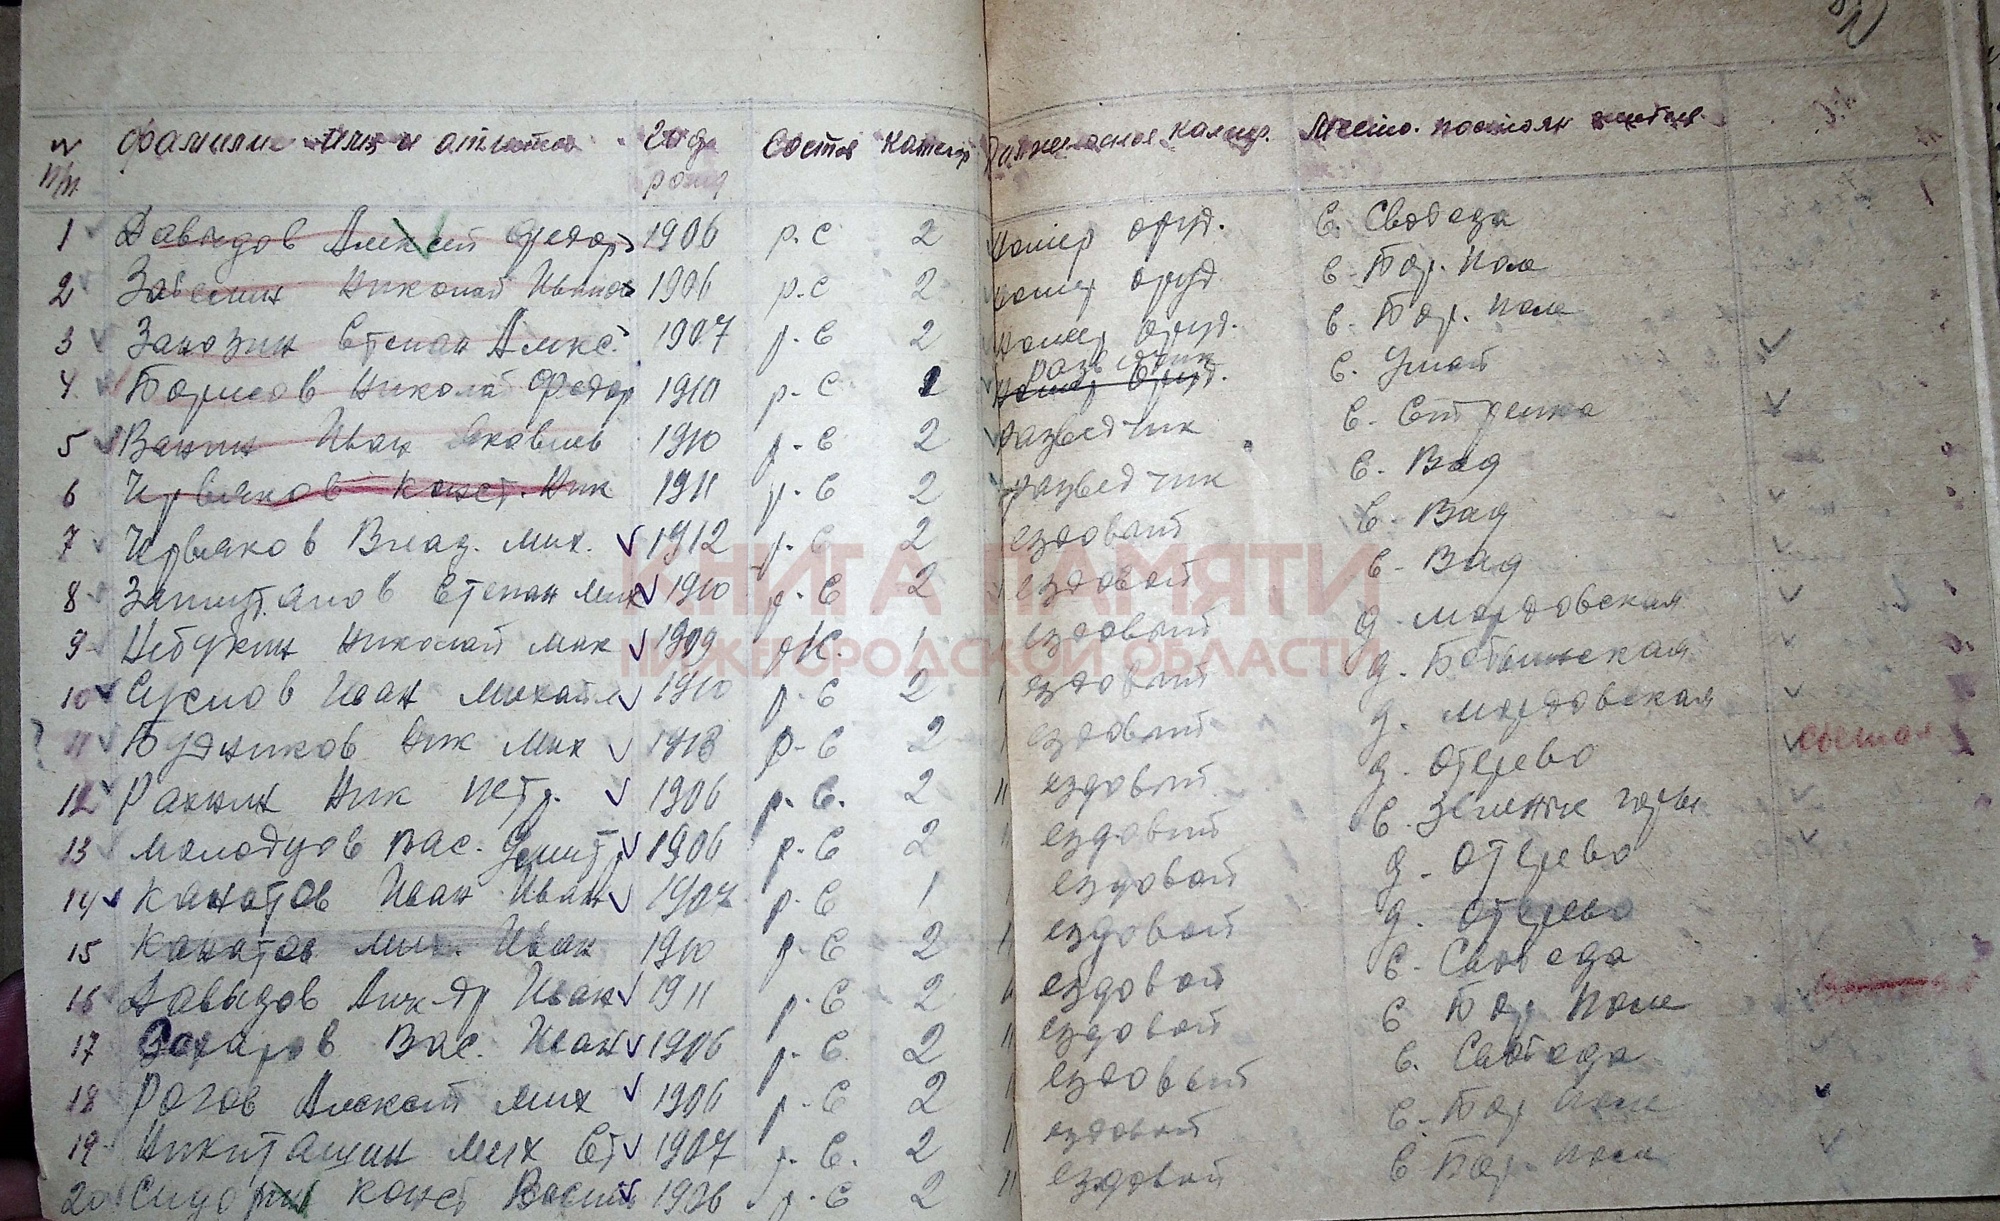 № п/п фамилия имя и отчество Года рожд Состав Категор камер. Место постоян
1 Давыдов Алексей Федор 1906 р.с 2 номер оруд. с. Слобода
2 Николай Иванов 1906 р.с 2 номер оруд с. Бор. Поле
3 Занозин Степан Алекс. 1907 р.с 2 номер оруд. с. Бор. Поле
4 Борисов Николай Федор 1910 р.с 2 разведчик номер оруд. с. Умай
5 Ванин Иван Яковлев 1910 р-с 2 разведчик с. Стрелка
6 Червяков Конст. Ник 1911 р-с 2 разведчик с. Вад
7 Червяков Влад. Мих. 1912 р-с 2 ездовый с. Вад
8 Степан Мих 1910 р-с 2 ездовой с. Вад
9 Николай Мих 1909 1 ездовый д. Мордовская
10 Суслов Иван Михайл 1910 р-с 2 ездовый д.
11 Будников Ник Мих р-с 2 ездовый д. Мордовская
12 Ник Петр. 1906 р.с. 2 " ездовый д. Отерево
13 Молодцов Вас. Дмитр 1906 р.с 2 " ездовый с. Зеленые горы
14 Канатов Иван Иван 1907 р-с 1 ездовой д. Отерево
15 Канатов Мих. Иван 1910 р-с 2 " ездовой д. Отерево
16 Давыдов Иван 1911 р-с 2 ездовой с. Слобода
17 Захаров Вас. Иван 1906 р.с. 2 " ездовой с Бор Поле
18 Рогов Алексей Мих 1906 р-с 2 ездовый с. Слобода
19 Никиташин Мих Ст 1907 р.с. 2 ездовой с. Бор Поле
20 Конст Васил 1906 р-с 2 " ездовый с Бор. Поле
КНИГА ПАМЯТИ
НИЖЕГОРОДСКОЙ ОБЛАСТИ